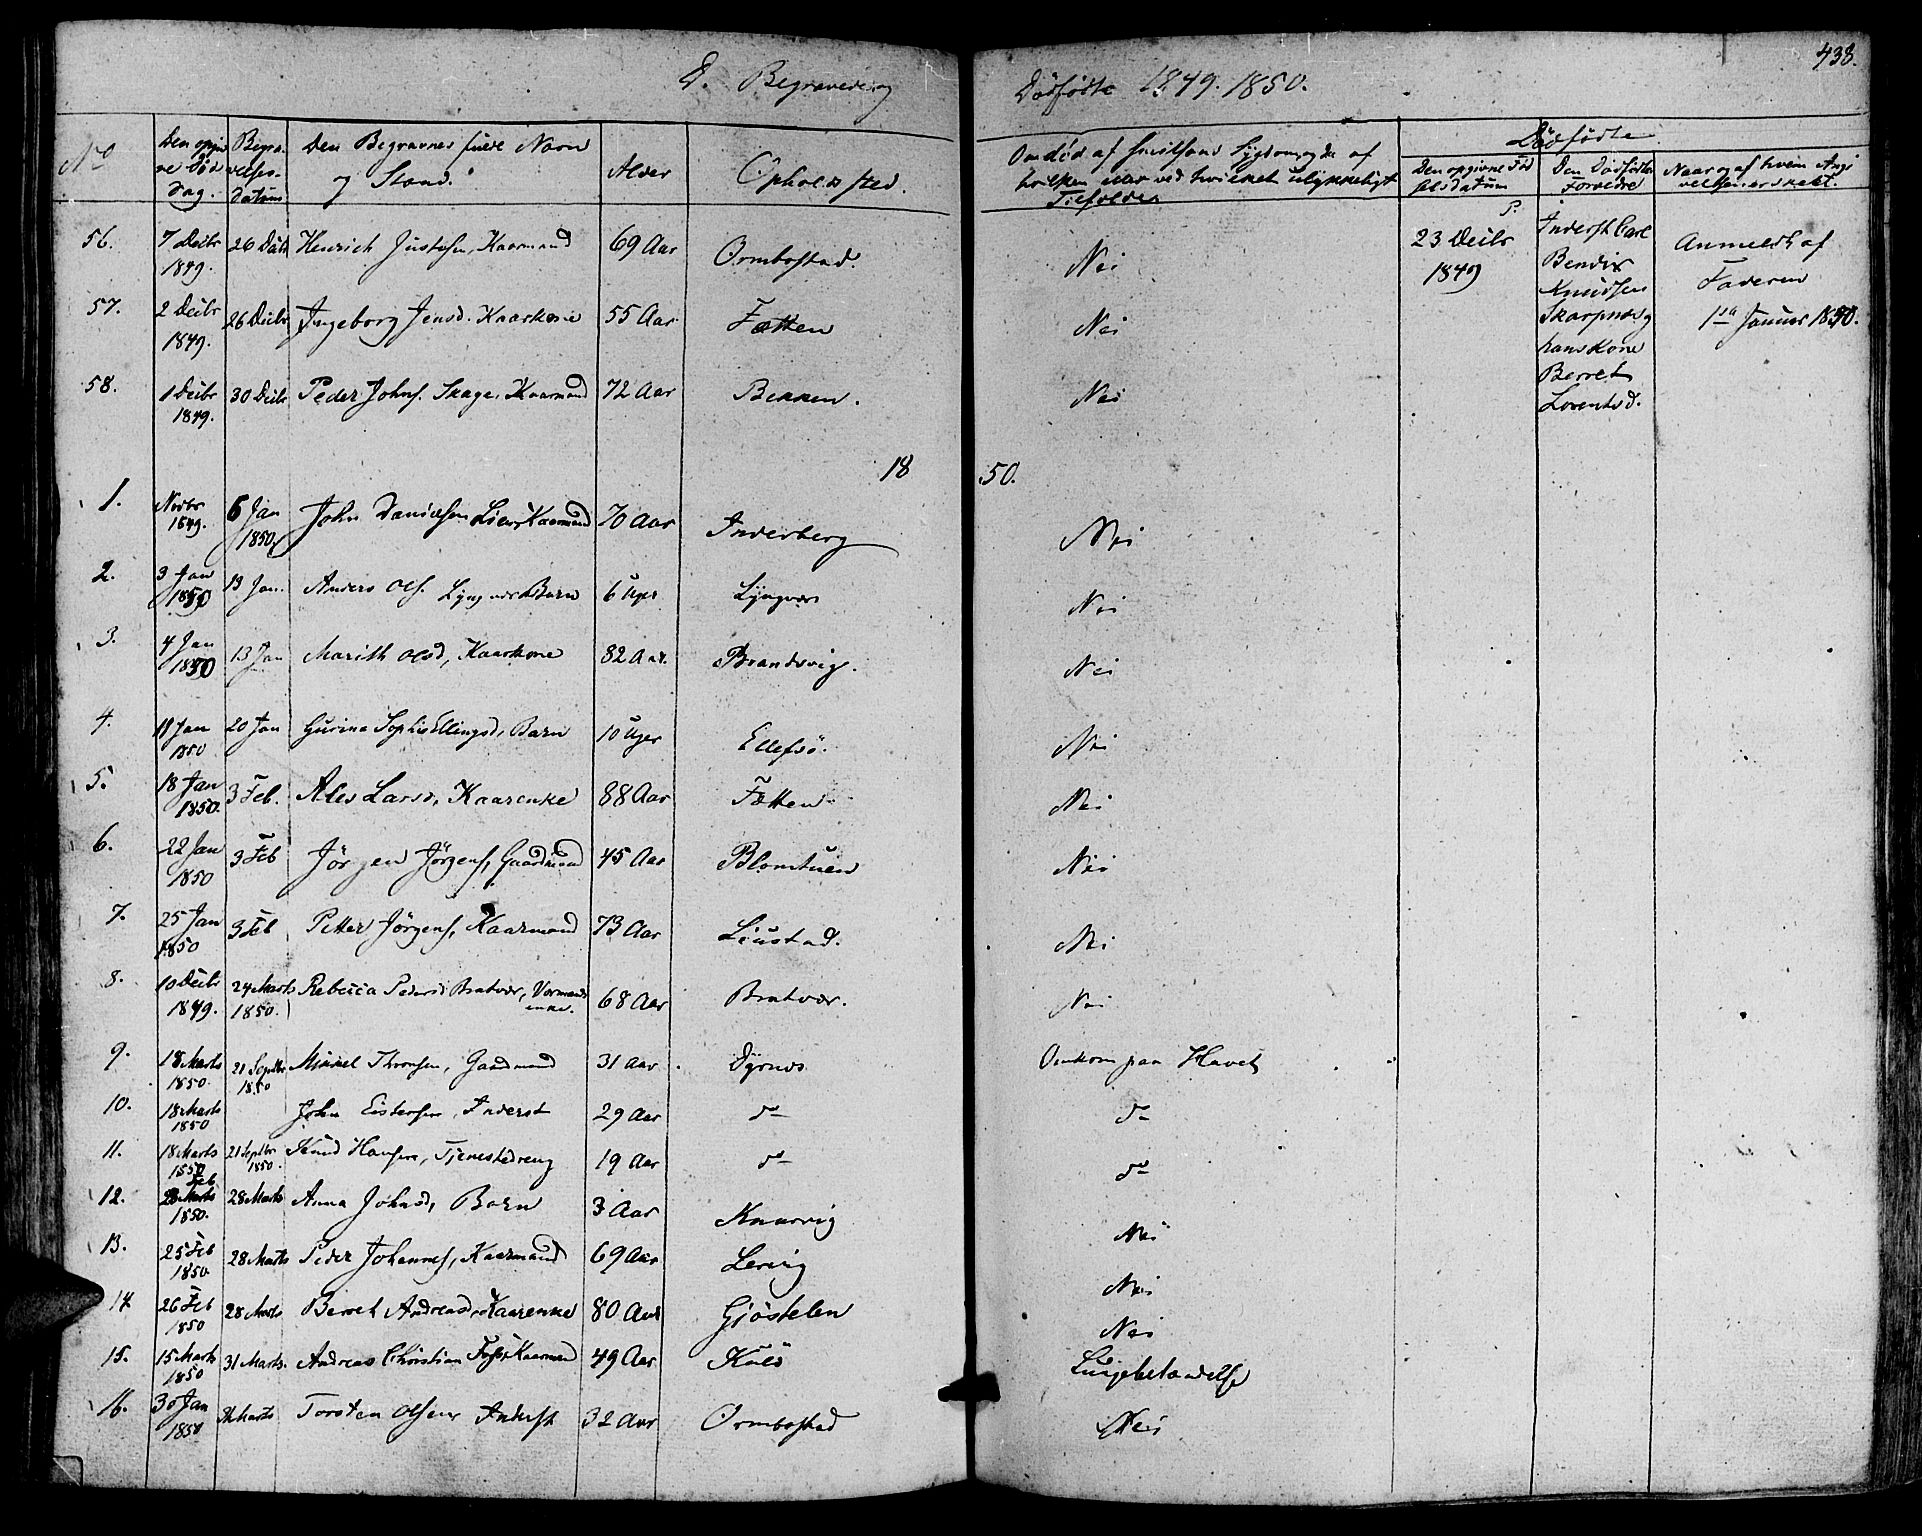 438.
D. Begravede og Dödfödte 1849. 1850.
No
Den opgivne Döds Dag.
Begravelses-Datum
Den Begravnes fulde Navn og Stand.
Alder
Opholdssted.
Om död af smitsom Sygdom, og da af hvilken eller ved hvilket ulykkeligt Tilfælde.
Dödfödte
Den opgivne Födselsdatum
Den Dödfödtes Forældre
Naar og af hvem Angivelsen er skeet.
56. 7 Decbr 1849. 26 Decbr Henrich Justesen, Kaarmand 69 Aar Ormbostad. Nei
P. 23 Decbr 1849
Inderst Carl Bendix Knudsen Skarpnes og hans Kone Berret Lorentsd.
Anmeldt af Faderen 1ste Januar 1850.
57. 2 Decbr 1849. 26 Decbr Ingeborg Jensd. Kaarkone 55 Aar Fætten Nei
58. 1 Decbr 1849. 30 Decbr Peder Johns. Skage, Kaarmand 72 Aar Bekken. Nei
1850.
1. Novbr 1849. 6 Jan 1850. John Danielsen Lien, Kaarmand 70 Aar Inderberg Nei
2. 3 Jan 1850 13 Jan. Anders Ols. Lyngvær Barn 6 Uger Lyngvær Nei
3. 4 Jan 1850 13 Jan Marith Olsd, Kaarkone 82 Aar. Brandsvig. Nei
4. 11 Jan 1850 20 Jan Gurine Sophie Ellingsd, Barn 10 Uger Ellefsö. Nei
5. 18 Jan 1850. 3 Feb. Ales Larsd, Kaarenke 88 Aar Fætten. Nei
6. 22 Jan 1850 3 Feb Jörgen Jörgens, Gaardmand 45 Aar Blomtuen Nei
7. 25 Jan 1850 3 Feb Petter Jörgens, Kaarmand 73 Aar Liustad. Nei
8. 10 Decbr 1849. 24 Marts 1850. Rebecca Pedersd Bratvær, Vormands enke. 68 Aar Bratvær. Nei
9. 18 Marts 1850. 21 Septbr 1850 Mikkel Thronsen, Gaardmand 31 Aar. Dyrnes Omkom paa Havet
10. 18 Marts 1850 John Eistensen, Inderst 29 Aar do do
11. 18 Marts 1850 21 Septbr 1850. Knud Hansen, Tjenestedreng 19 Aar do do
12. Feb 28 Marts 1850. 28 Marts Anna Johnsd, Barn 3 Aar Knarvig Nei
13. 25 Feb 1850 28 Marts Peder Johannes, Kaarmand 69 Aar Lervig Nei
14 26 Feb 1850 28 Marts Berret Andreasd, Kaarenke 80 Aar Gjöstelen Nei
15. 15 Marts 1850 31 Marts. Andreas Christian Foss, Kaarmand 49 Aar Kulö Lungebetændelse
16. 30 Jan 1850 Marts Torsten Olsen Inderst 32 Aar Ormbostad Nei